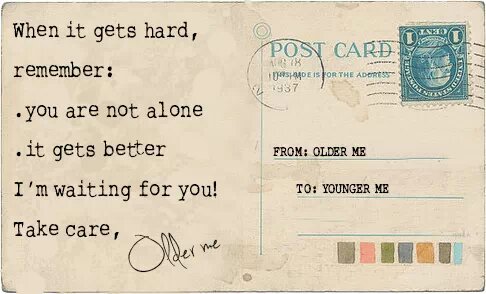 When it gets hard,
remember:
.you are not alone
.it gets better
I'm waiting for you!
Take care,
Older me
POST CARD
THIS SIDE IS FOR THE ADDRESS
1937
1 1
FROM: OLDER ME
TO: YOUNGER ME